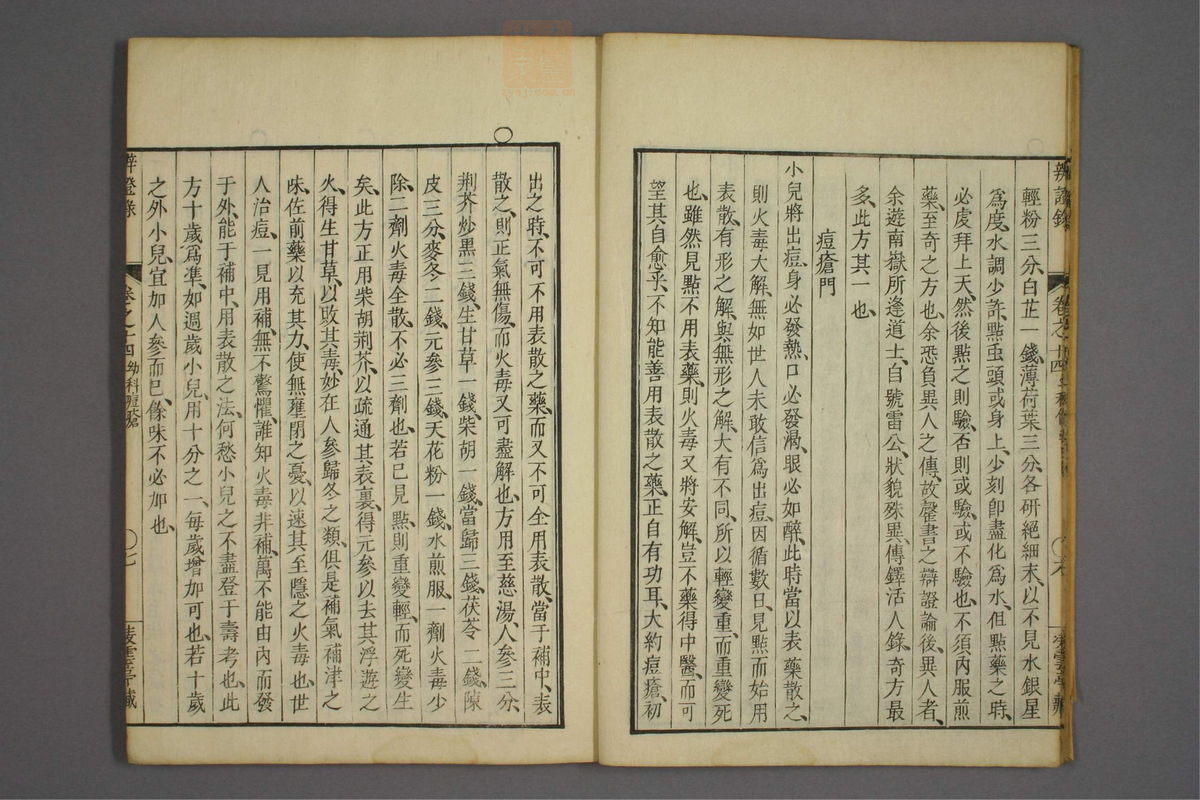 輕粉三分、白芷一錢、薄荷葉三分、各研絕細末、以不見水銀星
爲度、水調少許、點虫頭或身上、少刻卽盡化爲水、但點藥之時、
必虔拜上天、然後點之則驗、否則或驗或不驗也、不須內服煎
藥、至奇之方也、余恐負異人之傳、故罄書之辯證論後、異人者、
余遊南嶽所逢道士、自號雷公、狀貌殊異、傳鐸活人錄、奇方最
多、此方其一也、
痘瘡門
小兒將出痘、身必發熱、口必發渴、眼必如醉、此時當以表藥散之、
則火毒大解、無如世人未敢信爲出痘、因循數日、見點而始用
表散、有形之解、與無形之解、大有不同、所以輕變重、而重變死
也、雖然見點不用表藥、則火毒又將安解、豈不藥得中醫、而可
望其自愈乎、不知能善用表散之藥、正自有功耳、大約痘瘡、初
出之時、不可不用表散之藥、而又不可全用表散、當于補中、表
散之、則正氣無傷、而火毒又可盡解也、方用至慈湯、人參三分、
荆芥炒黑三錢、生甘草一錢、柴胡一錢、當歸三錢、茯苓二錢、陳
皮三分、麥冬二錢、元參三錢、天花粉一錢、水煎服、一劑火毒少
除、二劑火毒全散、不必三劑也、若已見點、則重變輕、而死變生
矣、此方正用柴胡荆芥、以疏通其表裏、得元參以去其浮遊之
火、得生甘草、以敗其毒、妙在人參歸冬之類、俱是補氣補津之
味、佐前藥以充其力、使無壅閉之憂、以速其至隱之火毒也、世
人治痘、一見用補、無不驚懼、誰知火毒非補、萬不能由內而發
于外、能于補中、用表散之法、何愁小兒之不盡登于壽考也、此
方十歲爲準、如週歲小兒、用十分之一、每歲增加可也、若十歲
之外小兒、宜加人參而已、餘味不必加也、
辨證錄
卷之十四 幼科痘瘡